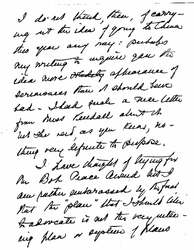 I do not think, then, of carry-
ing out the idea of going to China
this year any way: perhaps
my writing to inquire gave the
idea more appearance of
seriousness than it should have
had. I had such a nice letter
from Miss Kendall about it
but she said, as you know, no-
thing very definite to propose.
I have thought of trying for
the Bok Peace Award but I
am rather embarrassed by the fact
that the "plan" that I should like
to advocate is not the very interest-
ing plan or system of plans